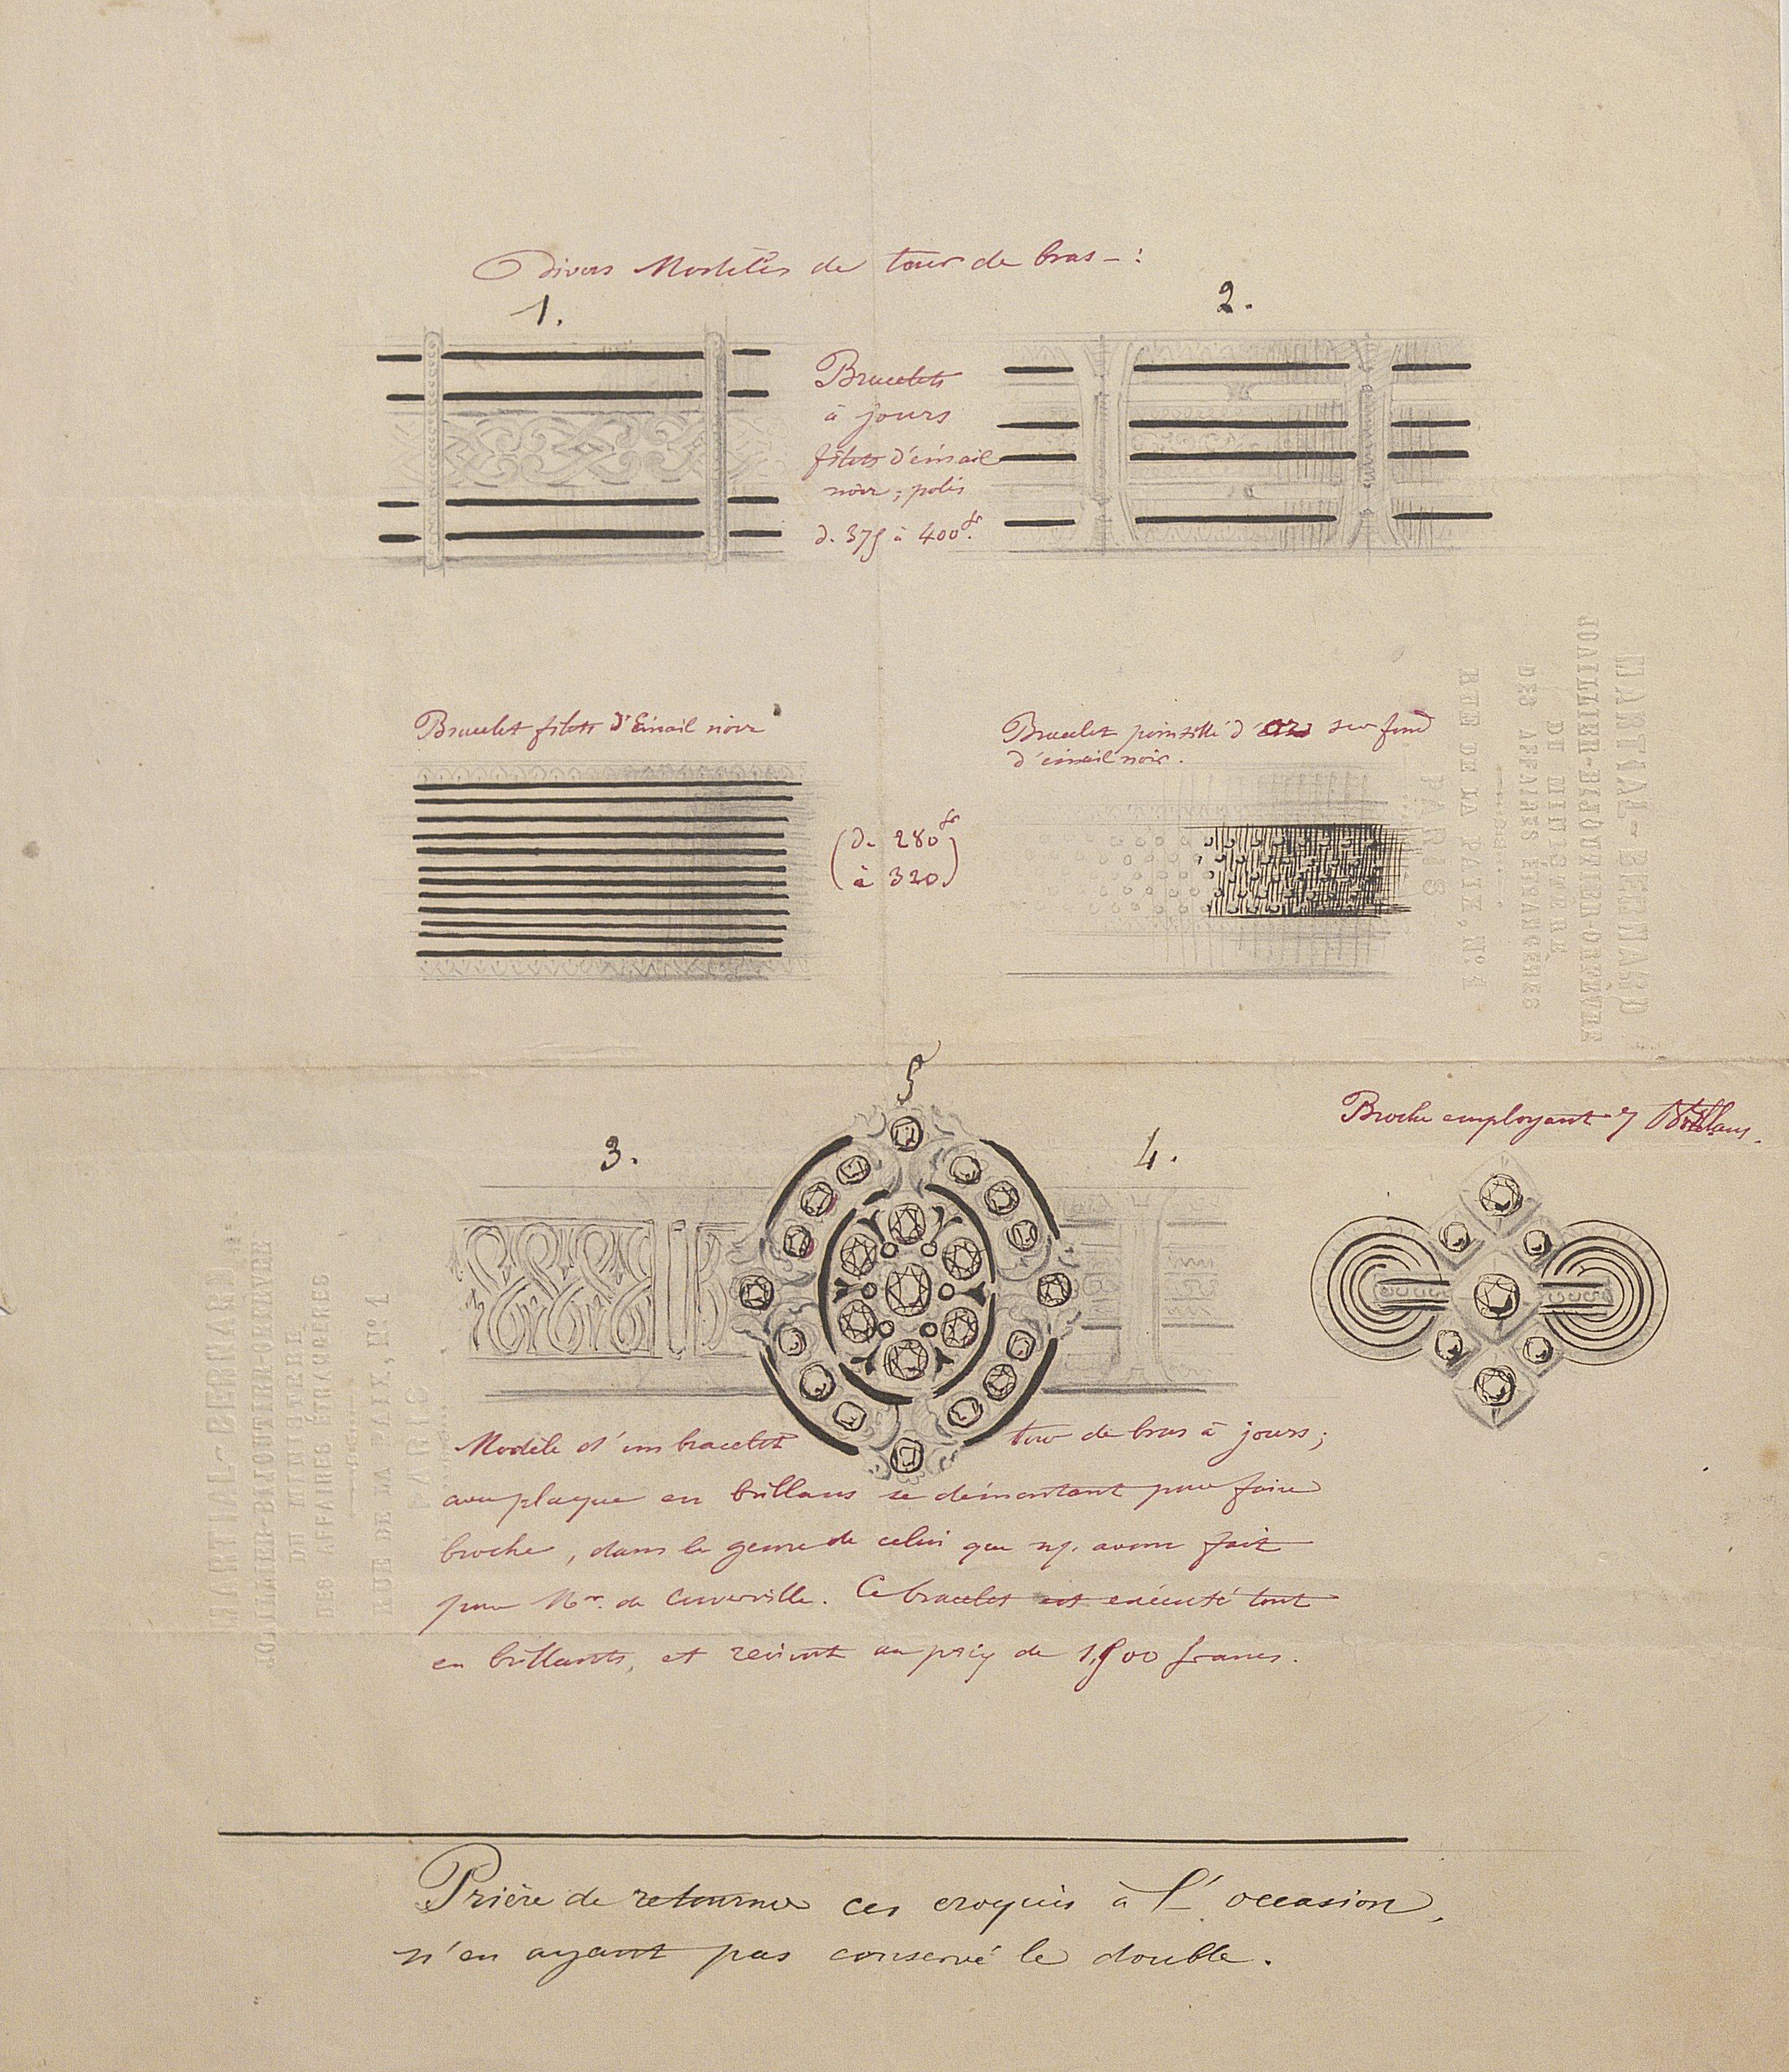 Divers Modèles de tour de bras - :
1.
2.
Bracelets
à jours
filets d'émail
noir ; polis
d. 375 à 400 fr.
Bracelet filets d'Email noir
(de 280 fr
à 320)
Bracelet pointillé d'or sur fond
d'émail noir.
MARTIAL-BERNARD
JOAILLIER-BIJOUTIER-ORFÈVRE
DU MINISTERE
DES AFFAIRES ETRANGERES
RUE DE LA PAIX, N° 1
PARIS
5
3.
4.
Broche employant 7 Brillans.
Modèle d'un bracelet tour de bras à jours ;
avec plaque en brillans se démontant pour faire
broche, dans le genre de celui que ns. avons fait
pour Mr. de Cuverville. Ce bracelet est exécuté tout
en brillants, et revient au prix de 1,500 francs.
MARTIAL-BERNARD
JOAILLIER-BIJOUTIER-ORFEVRE
DU MINISTERE
DES AFFAIRES ÉTRANGERES
RUE DE LA PAIX, N° 1
PARIS
Prière de retourner ces croquis à l'occasion,
n'en ayant pas conservé le double.